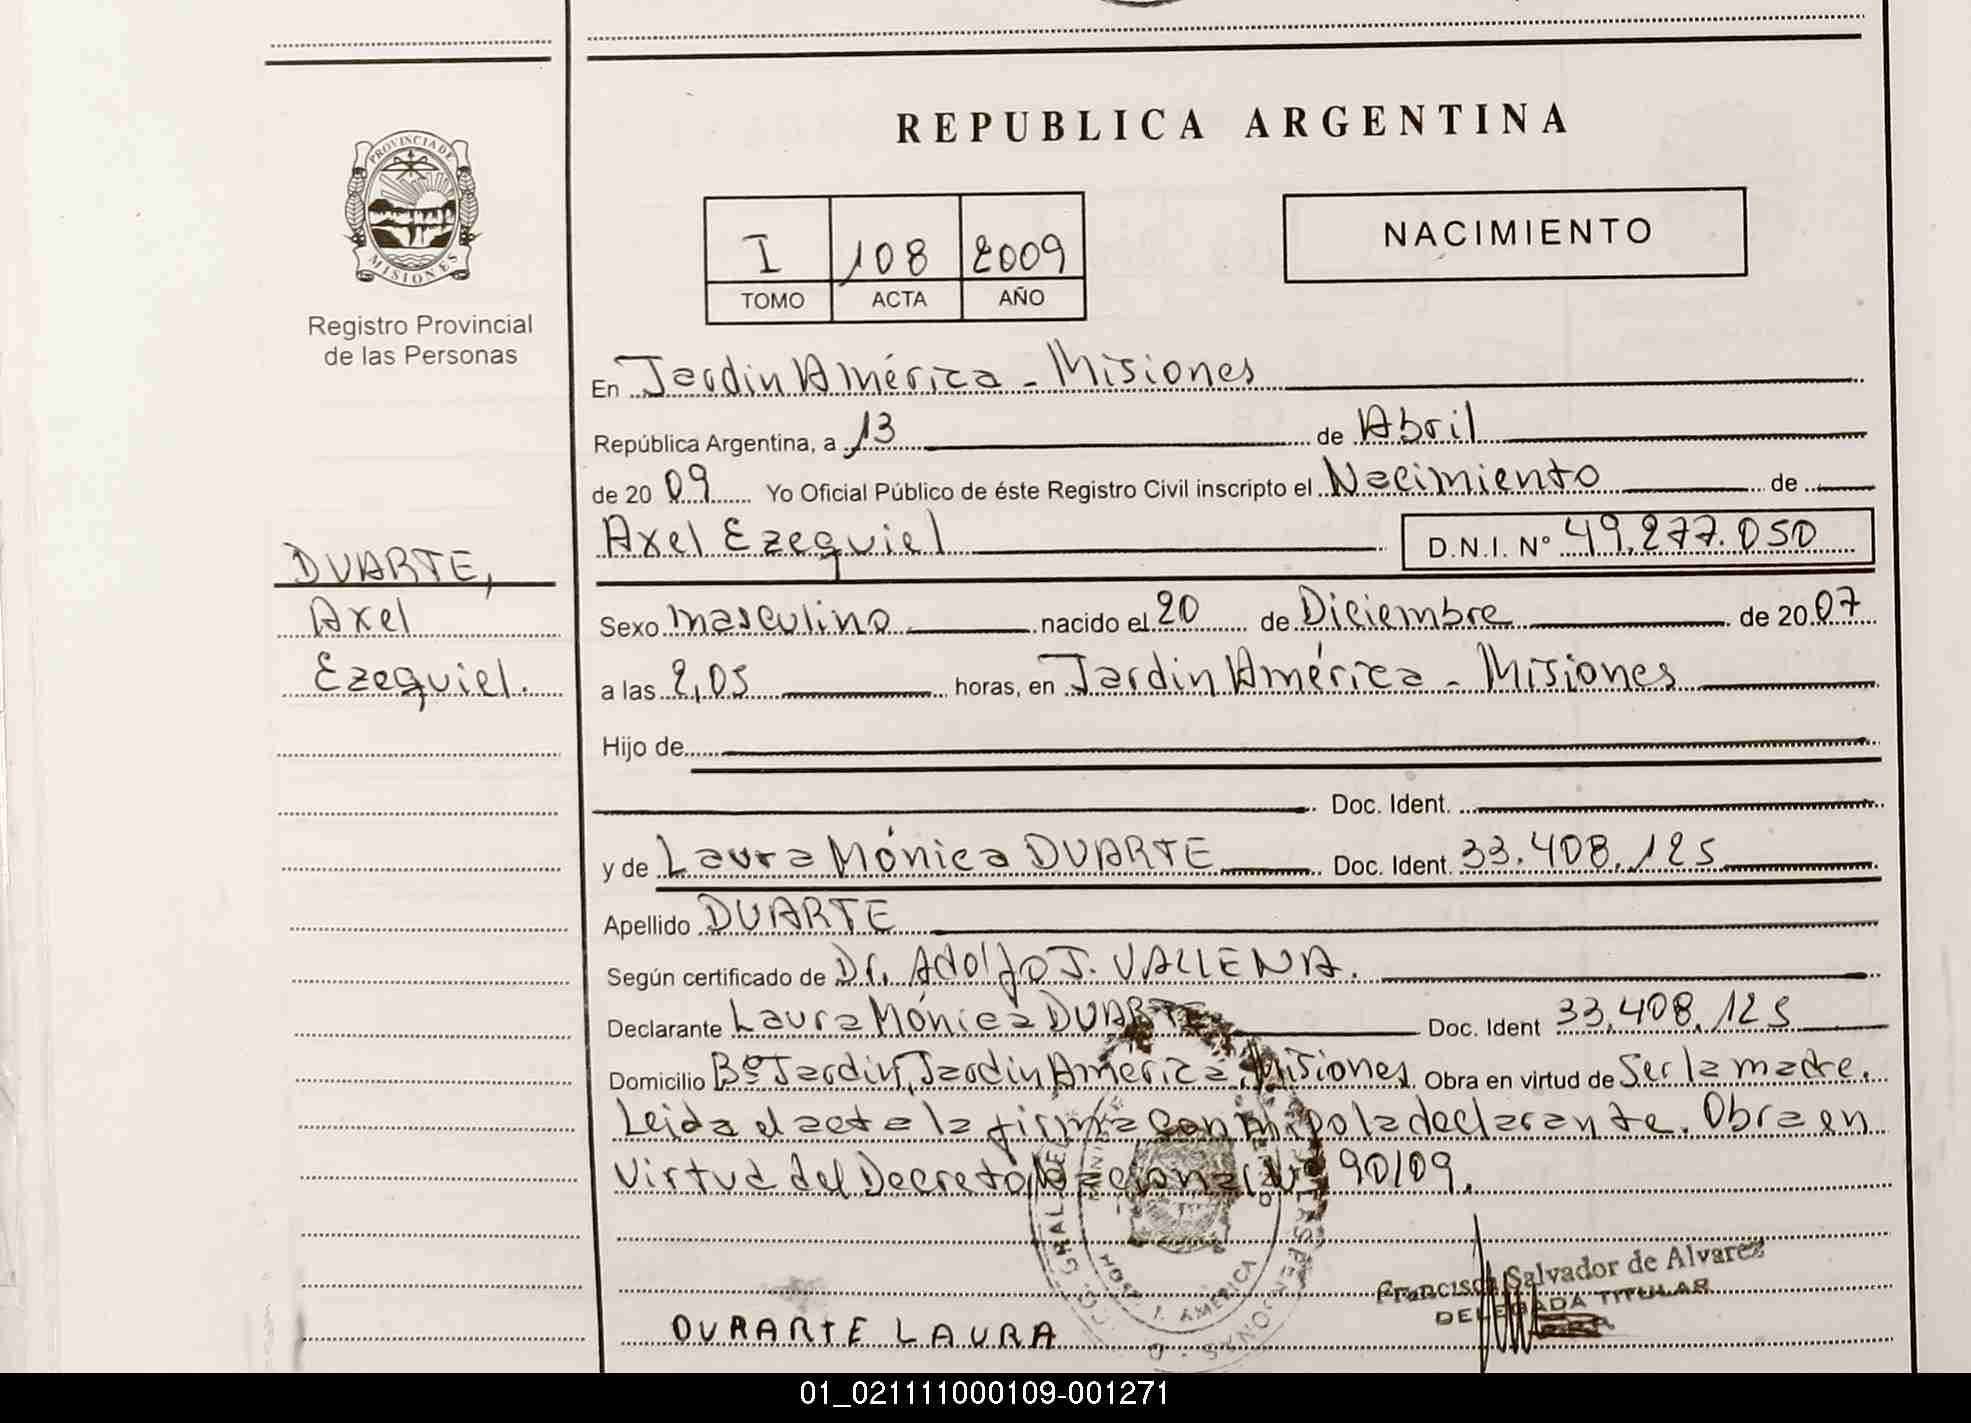 REPUBLICA ARGENTINA
PROVINCIA DE
MISIONES
Registro Provincial
de las Personas
I 108 2009
TOMO ACTA AÑO
NACIMIENTO
En Jardin América - Misiones
República Argentina, a 13 de Abril
de 20 09 Yo Oficial Público de éste Registro Civil inscripto el Nacimiento de
Axel Ezequiel D.N.I. Nº 49.277.050
DUARTE,
Axel
Ezequiel.
Sexo masculino nacido el 20 de Diciembre de 20 07
a las 2,05 horas, en Jardin América - Misiones
Hijo de
Doc. Ident.
y de Laura Mónica DUARTE Doc. Ident. 33.408.125
Apellido DUARTE
Según certificado de Dr. Adolfo J. VALLENA.
Declarante Laura Mónica DUARTE Doc. Ident 33.408.125
Domicilio Bº Jardin, Jardin América, Misiones. Obra en virtud de Ser la madre.
Leida el acta la firma conmigo la declarante. Obra en
virtud del Decreto Nacional Nº 90/09.
AMERICA
Francisca Salvador de Alvarez
DELEGADA TITULAR
DURARTE LAURA
01_021111000109-001271